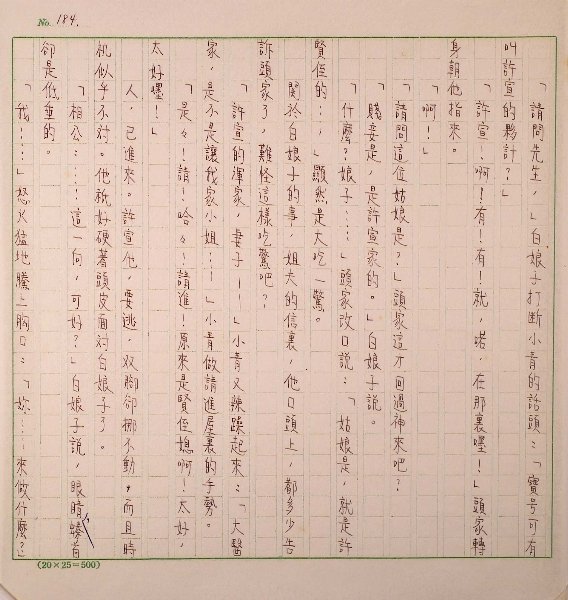 No. 184.
「請問先生，」白娘子打斷小青的話頭：「寶号可有
叫許宣的夥計？」
「許宣：啊！有！有！就，喏，在那裏嘿！」頭家轉
身朝他指來。
「啊！」
「請問這位姑娘是？」頭家這才回過神來吧？
「賤妾是，是許宣家的。」白娘子說。
「什麼？娘子……」頭家改口說：「姑娘是，就是許
賢侄的……」顯然是大吃一驚。
關於白娘子的事，姐夫的信裏，他口頭上，都多少告
訴頭家了，難怪這樣吃驚吧？
「許宣的渾家，妻子——」小青又辣躁起來：「大醫
家，是不是讓我家小姐……」小青做請進屋裏的手勢。
「是々！請！哈々！請進！原來是賢侄媳啊！太好，
太好嘿！」
人，已進來。許宣他，要逃，双腳卻挪不動，而且時
机似乎不对。他祇好硬著頭皮面对白娘子了。
「相公：……這一向，可好？」白娘子說，眼睛螓首
卻是低垂的。
「我！……」怒火猛地騰上胸口：「妳……來做什麼？」
(20×25=500)